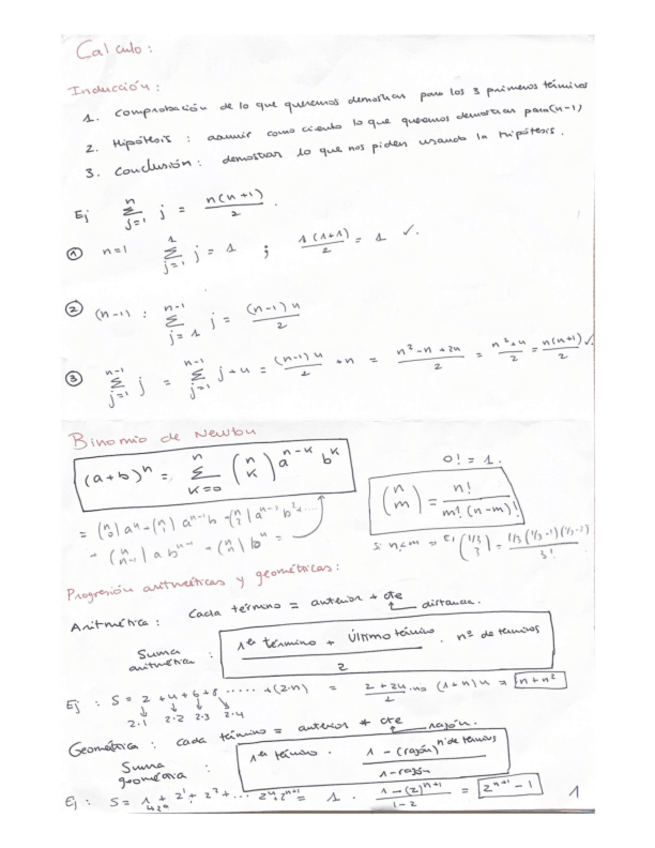 Calculo:
Inducción:
1. Comprobación de lo que queremos demostrar para los 3 primeros términos
2. Hipótesis: asumir como cierto lo que queremos demostrar para (n-1)
3. Conclusión: demostrar lo que nos piden usando la hipótesis.
Ej ∑_{j=1}^{n} j = n(n+1)/2.
① n=1 ∑_{j=1}^{1} j = 1 ; 1(1+1)/2 = 1 ✓.
② (n-1): ∑_{j=1}^{n-1} j = (n-1)n/2
③ ∑_{j=1}^{n-1} j = ∑_{j=1}^{n-1} j+n = (n-1)n/2 +n = n²-n+2n/2 = n²+n/2 = n(n+1)/2 ✓
Binomio de Newton
(a+b)^n = ∑_{k=0}^{n} (n k) a^{n-k} b^k
0! = 1.
(n m) = n!/m!(n-m)!
= (n 0) a^n + (n 1) a^{n-1} b + (n 2) a^{n-2} b² + ....
+ (n n-1) a b^{n-1} + (n n) b^n =
si n<m = Ej (1/3 3) = 1/3 (1/3-1)(1/3-2)/3!
Progresión aritméticas y geométricas:
Aritmética: Cada término = anterior + cte
distancia.
Suma aritmética: 1er término + último término/2 . nº de términos
Ej: S = 2+4+6+8 ..... +(2·n) = 2+2n/2 · n = (1+n)n = n+n²
2·1 2·2 2·3 2·4
Geométrica: cada término = anterior * cte
razón.
Suma geométrica: 1er término · 1-(razón)^{nº de términos}/1-razón
Ej: S = 1 + 2¹ + 2² + ... = 1 · 1-(2)^{n+1}/1-2 = 2^{n+1} - 1
1